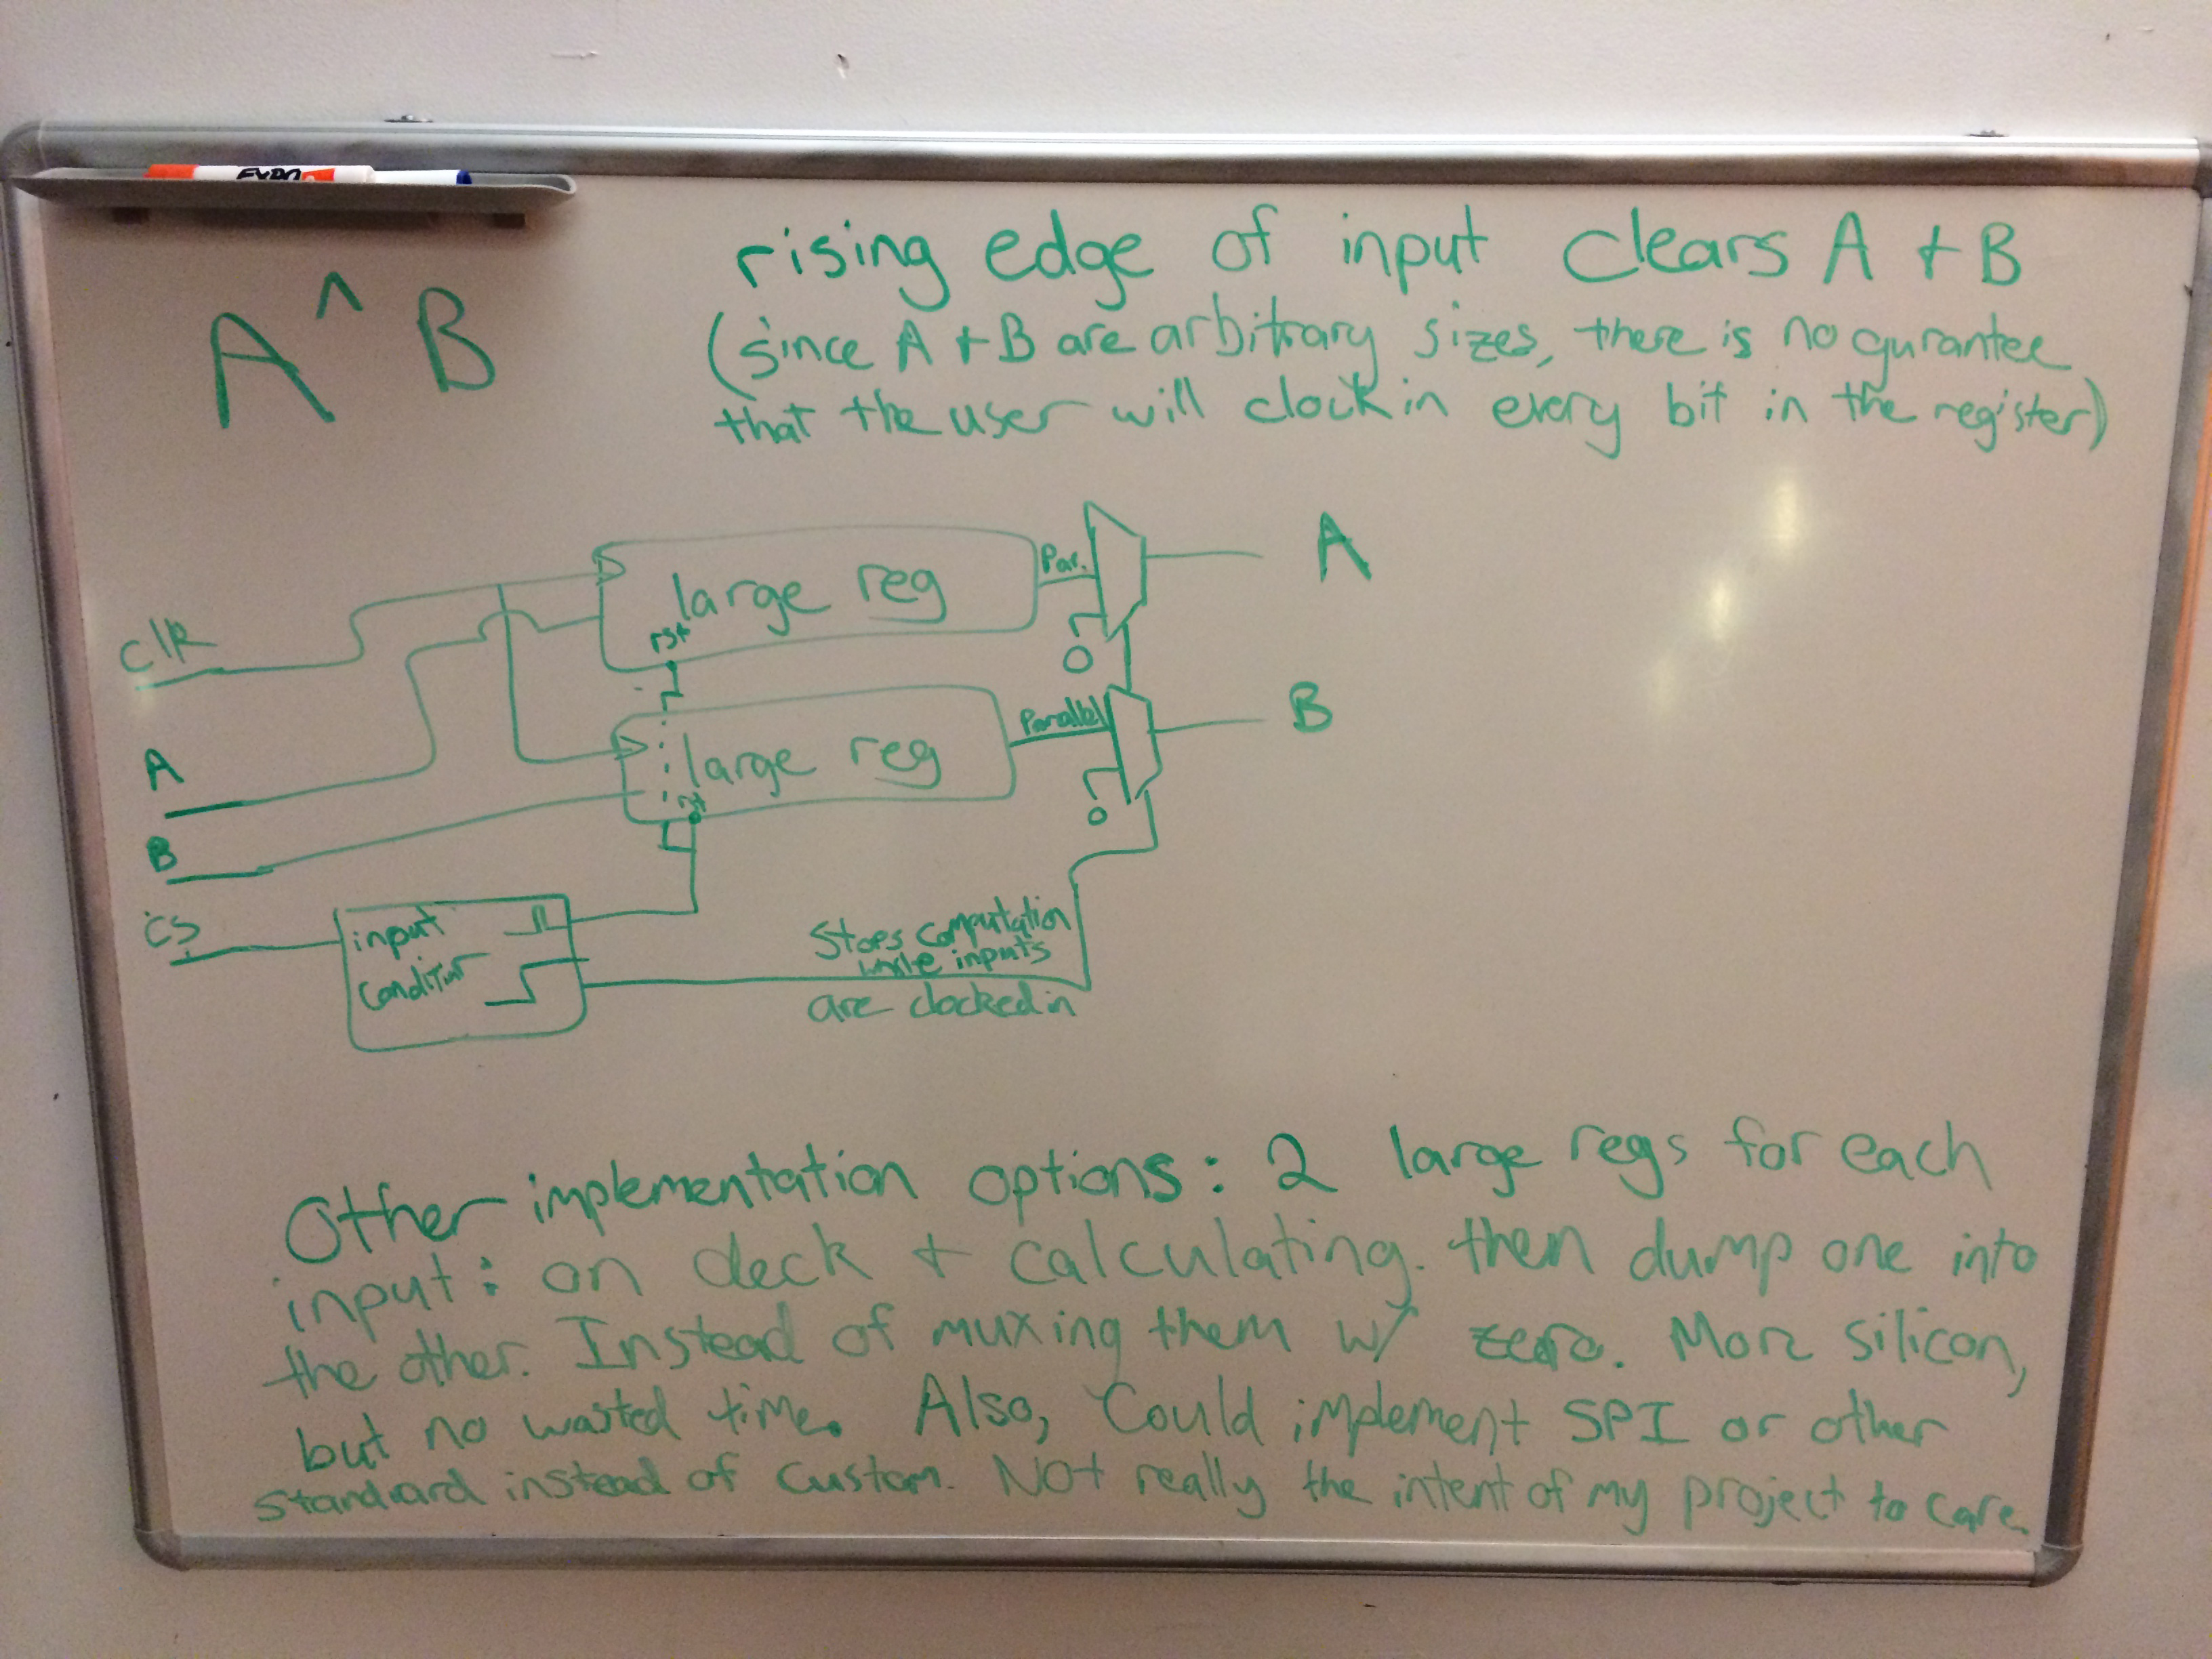 EXPO
A ^ B
rising edge of input clears A + B
(since A + B are arbitrary sizes, there is no gurantee
that the user will clock in every bit in the register)
clk
large reg
rst
Par.
0
A
A
large reg
rst
Parallel
0
B
B
CS
input
conditior
Stops computation
while inputs
are clocked in
Other implementation options: 2 large regs for each
input: on deck + calculating. then dump one into
the other. Instead of muxing them w/ zero. More silicon,
but no wasted time. Also, Could implement SPI or other
standard instead of custom. Not really the intent of my project to care.